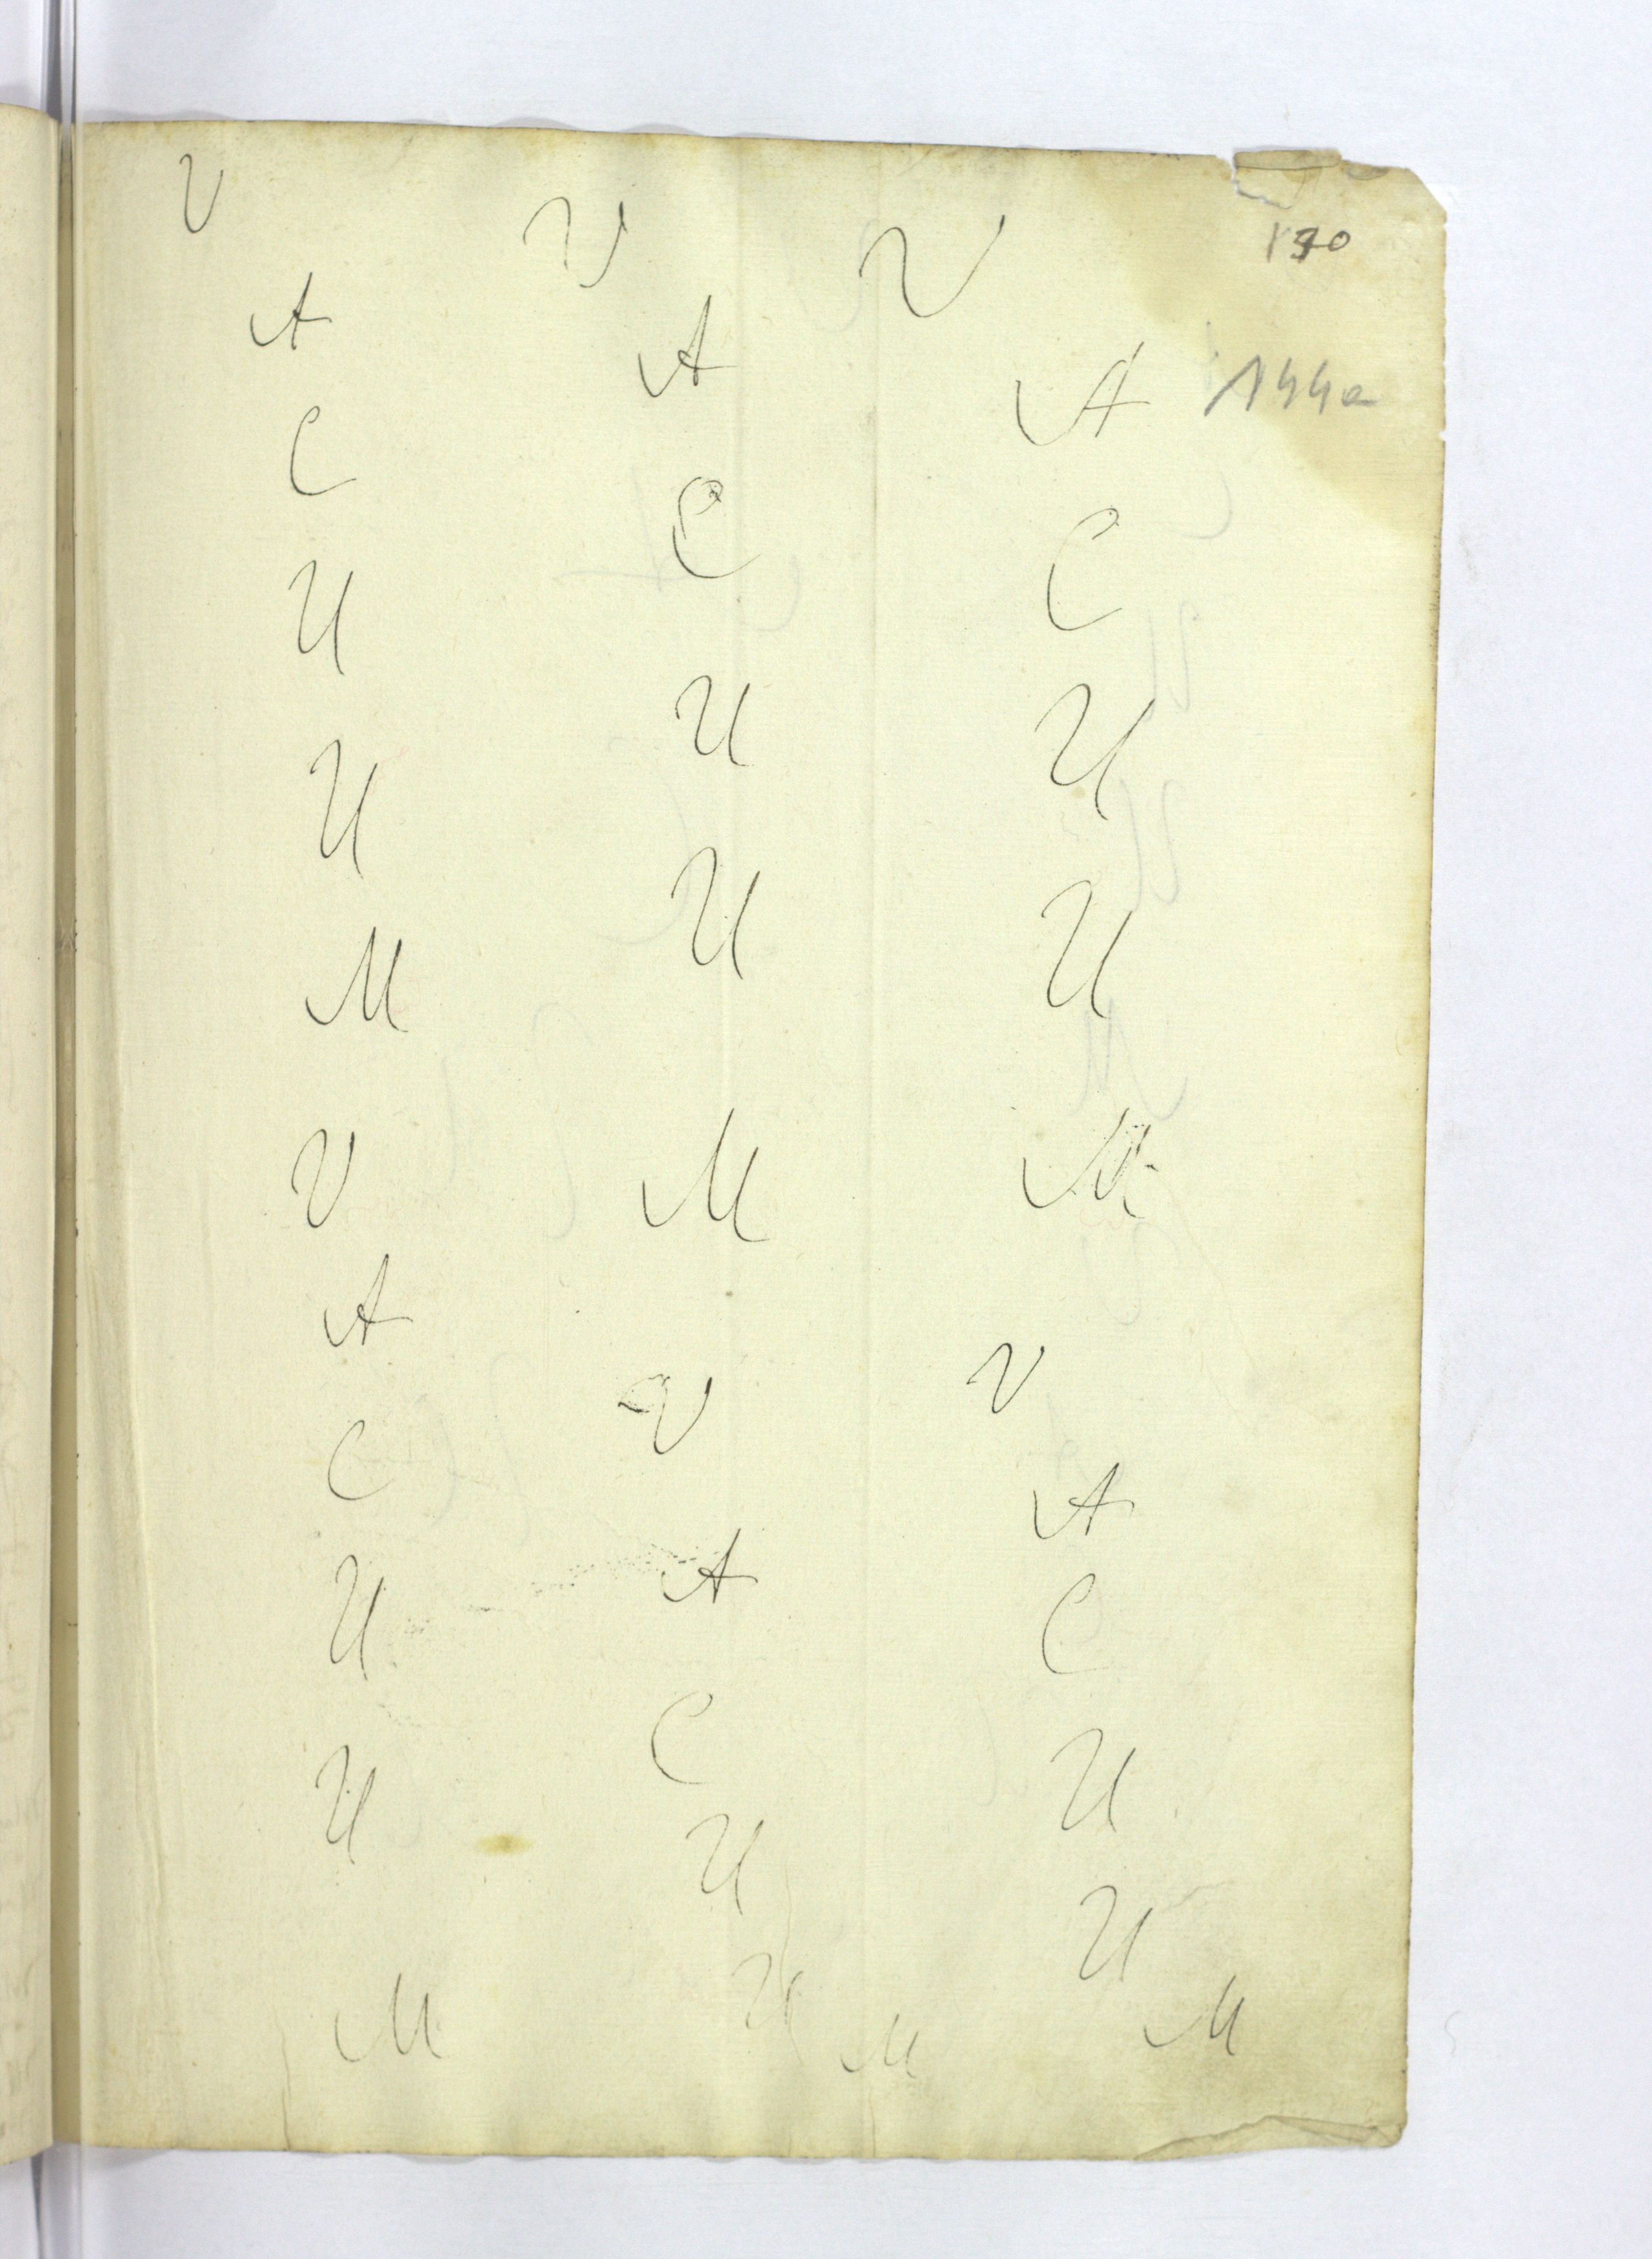 190
144a
V
A
C
U
U
M
V
A
C
U
U
M
V
A
C
U
U
M
V
A
C
U
U
M
V
A
C
U
U
M
V
A
C
U
U
M